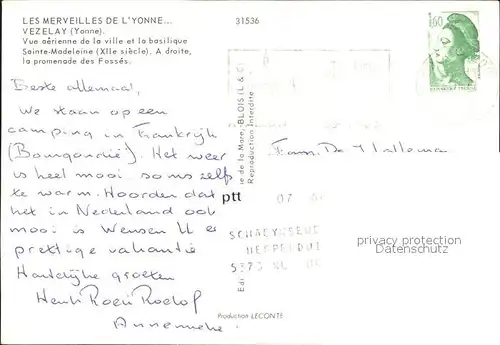 LES MERVEILLES DE L'YONNE...
VEZELAY (Yonne).
Vue aérienne de la ville et la basilique
Sainte-Madeleine (XIIe siècle). A droite,
la promenade des Fossés.
31536
1,60
Beste allemaal,
We staan op een
camping in Frankrijk
(Bourgondië). Het weer
is heel mooi soms zelfs
te warm. Hoorden dat
het in Nederland ook
mooi is Wensen U e
prettige vakantie
Hartelijke groeten
Henk Roeli Roelof
Annemieke
ie de la Mare, BLOIS (L & C)
Reproduction Interdite
Fam. De
ptt
07
5373
privacy protection
Datenschutz
Production LECONTE